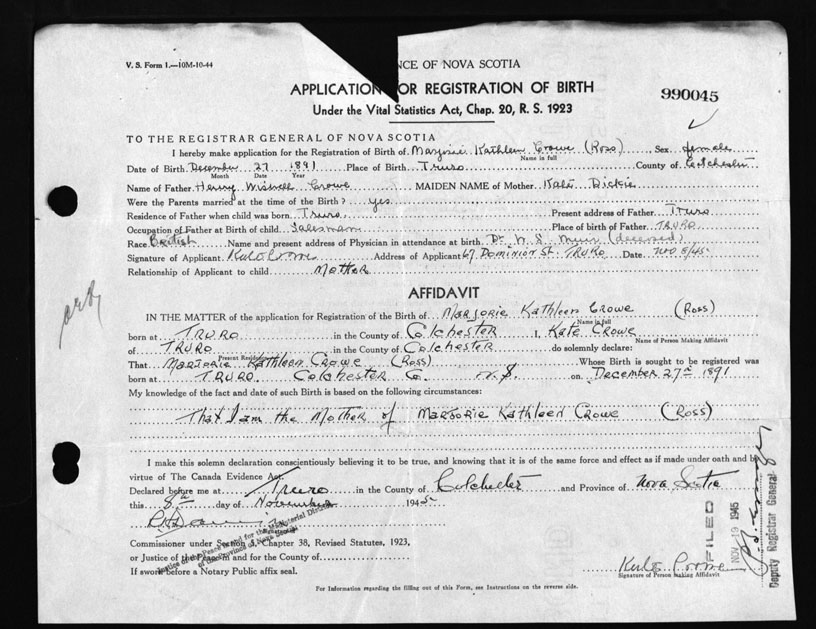 V. S. Form 1.—10M-10-44
NCE OF NOVA SCOTIA
APPLICATION FOR REGISTRATION OF BIRTH
990045
Under the Vital Statistics Act, Chap. 20, R. S. 1923
TO THE REGISTRAR GENERAL OF NOVA SCOTIA
I hereby make application for the Registration of Birth of Marjorie Kathleen Crowe (Ross) Sex female
Name in full
Date of Birth December 27 1891 Place of Birth Truro County of Colchester
Month Date Year
Name of Father Henry Crowe MAIDEN NAME of Mother Kate Dickie
Were the Parents married at the time of the Birth? yes
Residence of Father when child was born Truro Present address of Father Truro
Occupation of Father at Birth of child Salesman Place of birth of Father TRURO
Race British Name and present address of Physician in attendance at birth Dr. S. Muir (deceased)
Signature of Applicant Address of Applicant 67 Dominion St. TRURO Date Nov 8/45
Relationship of Applicant to child Mother
AFFIDAVIT
IN THE MATTER of the application for Registration of the Birth of Marjorie Kathleen Crowe (Ross)
Name in full
born at TRURO in the County of Colchester I, Kate Crowe
Name of Person Making Affidavit
of TRURO in the County of Colchester do solemnly declare:
Present Residence
That Marjorie Kathleen Crowe (Ross) Whose Birth is sought to be registered was
born at TRURO. Colchester Co. N.S. on December 27th 1891
My knowledge of the fact and date of such Birth is based on the following circumstances:
That I am the Mother of Marjorie Kathleen Crowe (Ross)
I make this solemn declaration conscientiously believing it to be true, and knowing that it is of the same force and effect as if made under oath and by
virtue of The Canada Evidence Act.
Declared before me at Truro in the County of Colchester and Province of Nova Scotia
this 8th day of November 1945
Commissioner under Section 3, Chapter 38, Revised Statutes, 1923,
or Justice of the Peace in and for the County of
If sworn before a Notary Public affix seal.
Justice of the Peace in and for the Magisterial District
of the Province of Nova Scotia
Signature of Person making Affidavit
FILED
NOV 19 1945
Deputy Registrar General
For Information regarding the filling out of this Form, see Instructions on the reverse side.